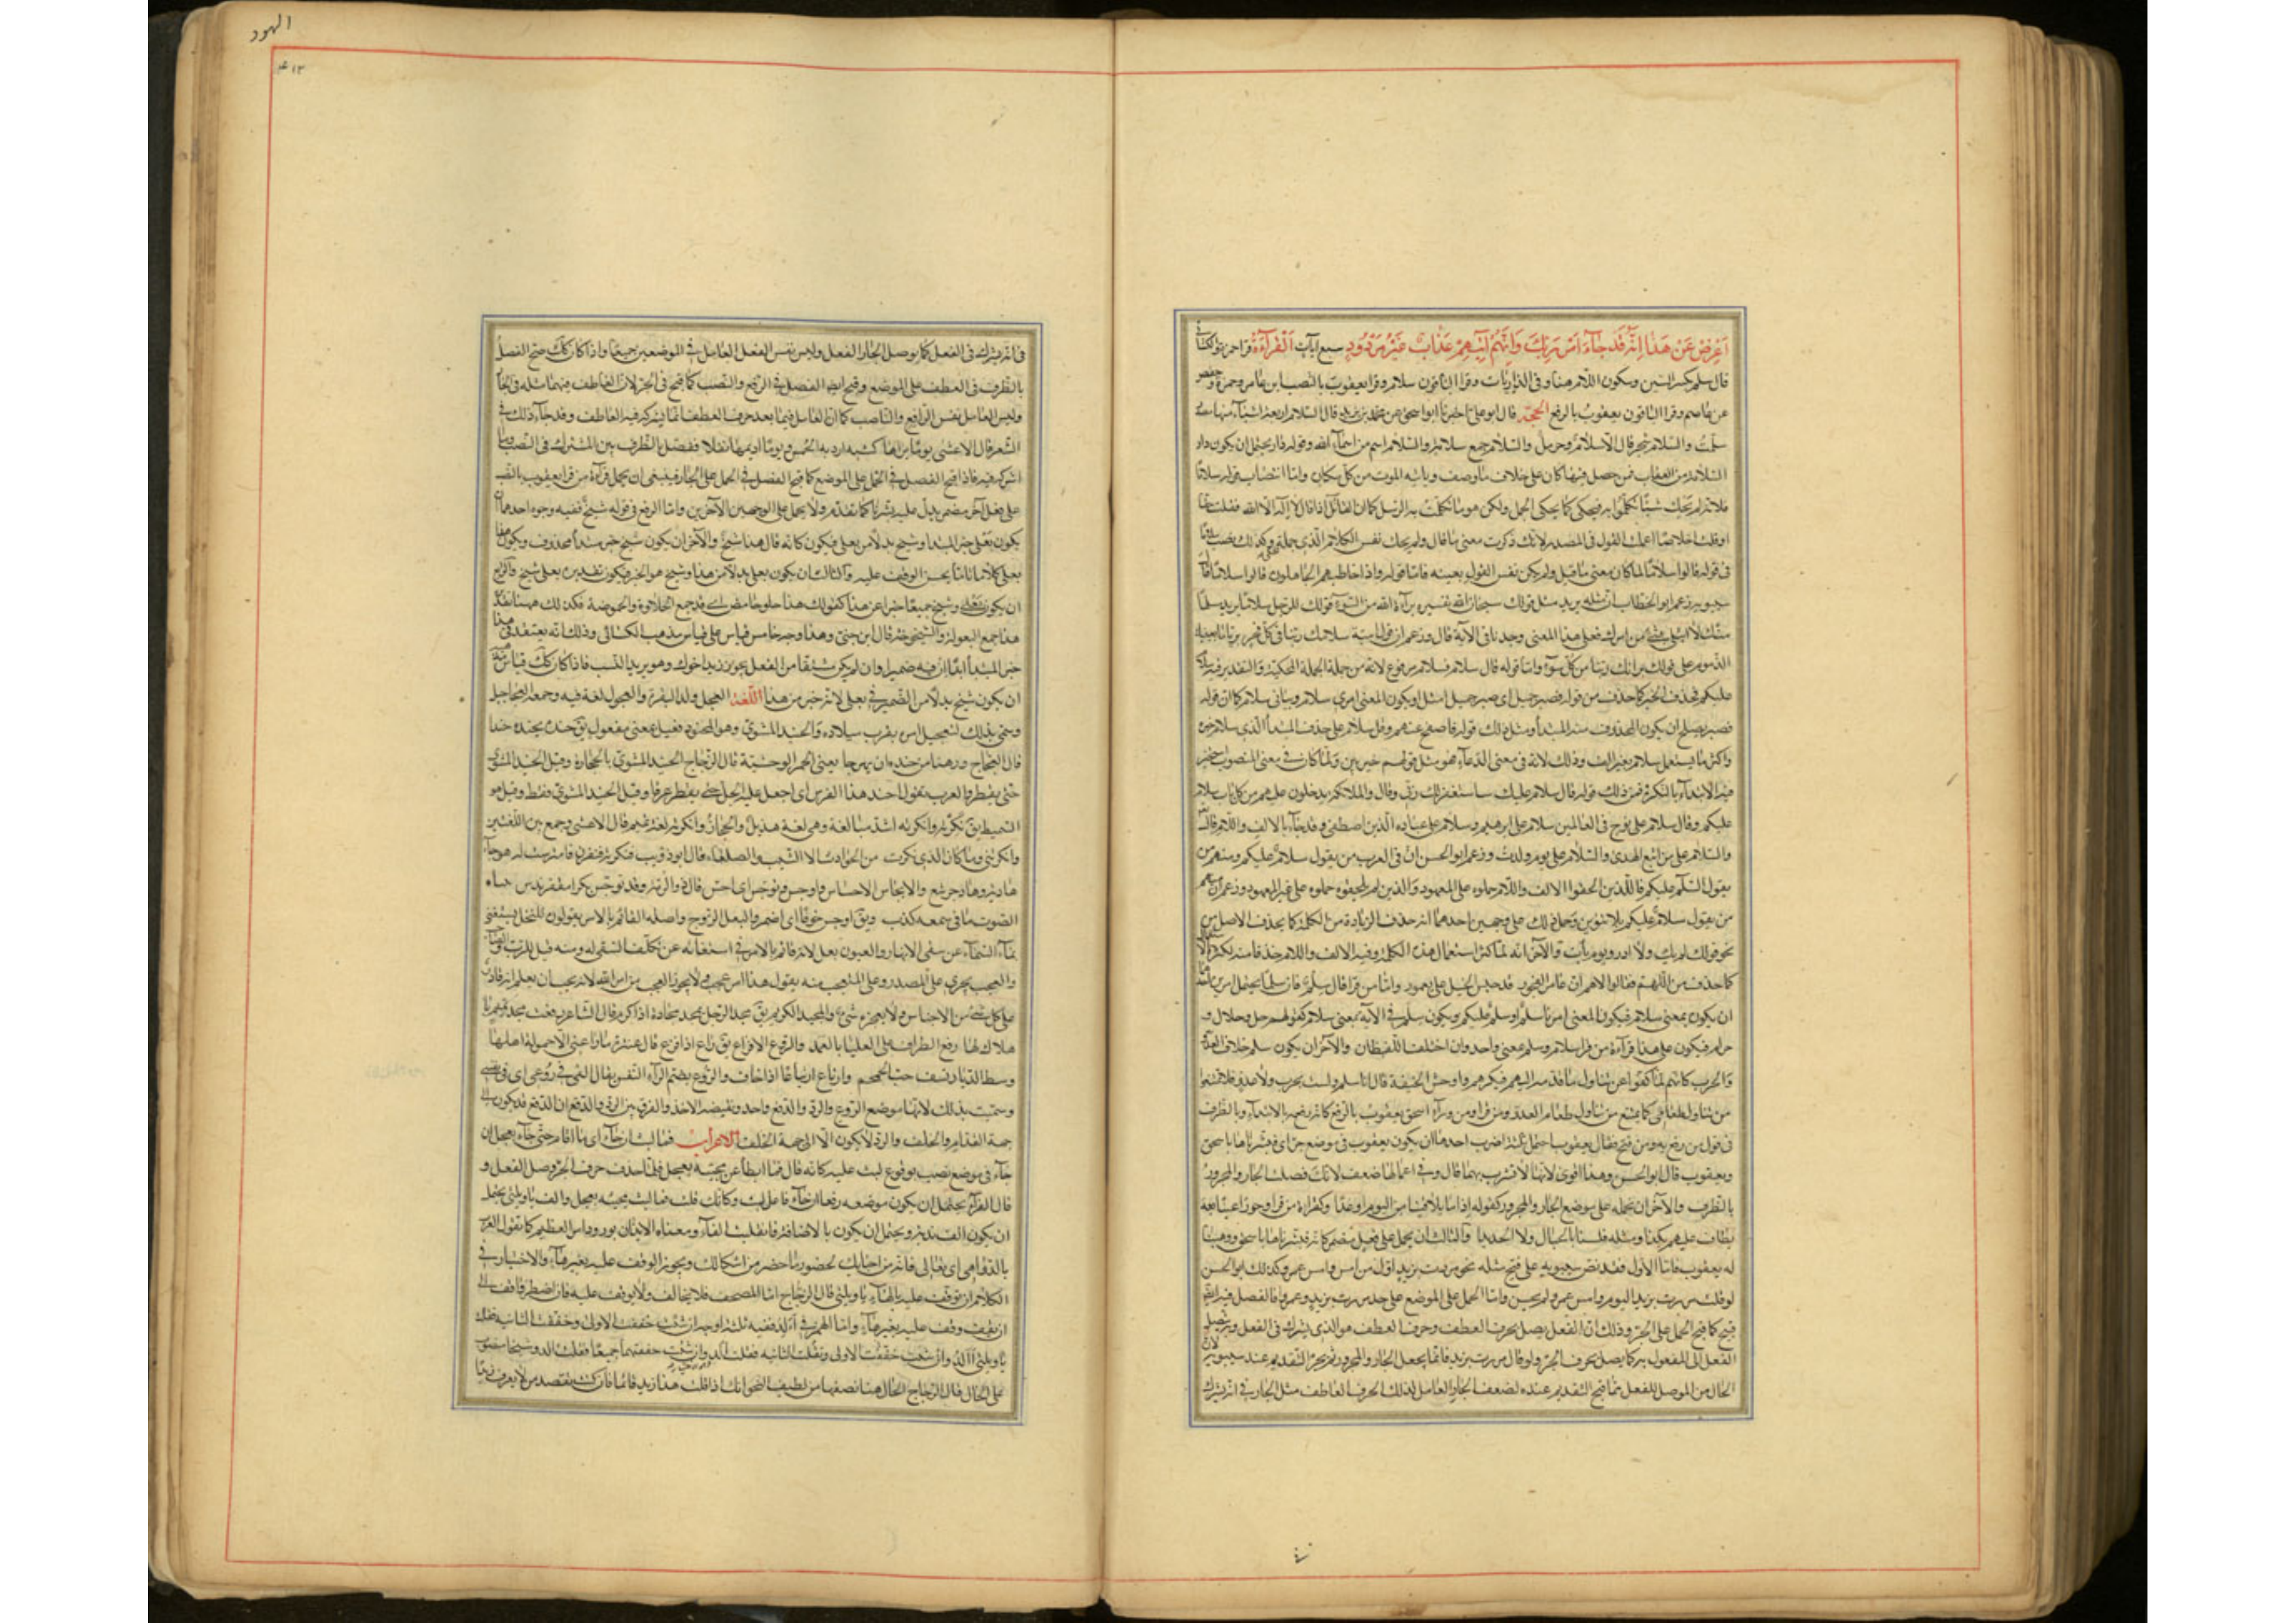 اَعْرِضْ عَنْ هَذَا اِنَّهُ قَدْ جَآءَ اَمْرُ رَبِّكَ وَاِنَّهُمْ آتيهِمْ عَذَابٌ غَيْرُ مَرْدُودٍ سبع آيات اَلْقِرآءَةُ قرا حمزة والكسائى
قال سلم بكسر السين وسكون اللام هنا وفى الذاريات وقرا الباقون سلام وقرا يعقوب بالنصب ابن عامر وحمزة وحفص
عن عاصم وقرا الباقون يعقوب بالرفع الحجّة قال ابو على اخبرنا ابو اسحق عن محمد بن يزيد قال السلام اربعة اشياء منها مصدر
سلّمت والسّلام شجر قال الا سلام وحرمل والسلام جمع سلامة والسلام اسم من اسمآء الله وقوله دار يحتمل ان يكون دار
السلامة من العقاب فمن حصل فيها كان على خلاف من وصف وياتيه الموت من كل مكان واما انتصاب قوله سلامًا
فلانه لم يحك شيئًا تكلّموا به فيحكى كما يحكى الجمل ولكن هو ما تكلّمت به الرّسل كما ان القائل اذا قال لا اله الا الله فقلت حقا
او قلت اخلاصا اعملت القول فى المصدر لانك ذكرت معنى ما قال ولم يحك نفس الكلام الذى جملة وكذلك نصب سلاما
فى قوله قالوا سلامًا لما كان معنى ما قيل ولم يكن نفس القول بعينه فاما قوله واذا خاطبهم الجاهلون قالوا سلاما قال
سيبويه زعم ابو الخطاب ان مثله يريد مثل قولك سبحان الله تفسيره برآءة الله من السوء قولك للرجل سلامًا يريد سلما
عليكم فحذف الخبر كما حذف من قوله فصبر جميل اى صبر جميل امثل او يكون المعنى امرى سلام وشانى سلام كما ان قوله
فصبر يصلح ان يكون المحذوف منه المبتدأ ومثل ذلك قوله فاصفح عنهم وقل سلام على حذف المبتدأ الذى سلام خبره
واكثر ما يستعمل سلام بغير الف وذلك لانه فى معنى الدّعآء فهو مثل قولهم خير بين ولما كان فى معنى المنصوب استجيز
فيه الابتدآء بالنكرة فمن ذلك قوله قال سلام عليك ساستغفر لك ربّى وقال والملائكة يدخلون عليهم من كل باب سلام
عليكم وقال سلام على نوح فى العالمين سلام على ابرهيم وسلام على عباده الذين اصطفى وقد جآء بالالف واللام قال
والسلام على من اتبع الهدى والسلام علىّ يوم ولدت وزعم ابو الحسن ان فى العرب من يقول سلام عليكم ومنهم من
يقول السّلام عليكم فالذين الحقوا الالف واللام حملوه على المعهود والذين لم يلحقوه حملوه على غير المعهود وزعم ان منهم
من يقول سلام عليكم بلا تنوين وحمل ذلك على وجهين احدهما انه حذف الزيادة من الكلمة كما يحذف الاصل من
نحو قولك لم يك ولا ادر ويوم يأت والآخر انه لما كثر استعمال هذه الكلمة وفيه الالف واللام حذفا منه لكثرة
كما حذف من اللّهمّ فقالوا لاهم ان عامر الفجور قد حبس الخيل على يعمور واما من قرا قال سلم فان سلما يحتمل امرين
ان يكون بمعنى سلام فيكون المعنى امرنا سلم او سلم عليكم ويكون سلم فى الآية بمعنى سلام كقولهم حل وحلال و
حرام فيكون على هذا قرآءة من قرا سلام وسلم بمعنى واحد وان اختلف اللفظان والآخر ان يكون سلم خلاف العدوّ
والحرب كانهم لما كفّوا عن تناول ما قدّمه اليهم فنكرهم واوجس الخيفة قال انا سلم ولست بحرب ولا عدوّ فلا تمتنعوا
من تناول طعامى كما يمتنع من تناول طعام العدوّ ومن قرا ومن ورآء اسحق يعقوب بالرفع كان رفعه بالابتدآء وبالظرف
فى قول من رفع به ومن فتح فقال يعقوب احتمل ثلثة اضرب احدها ان يكون يعقوب فى موضع جر اى فبشرناها باسحق
ويعقوب قال ابو الحسن وهذا اقوى لانها لا قد بشرت بهما قال وفى اعمالها ضعف لانك فصلت الجار والمجرور
بالظرف والآخر ان تحمله على موضع الجار والمجرور كقوله اذا ما تلاقينا من اليوم او غدا وكقراءة من قرا وحورا عينا بعد
يطاف عليهم بكذا ومثله فلسنا بالجبال ولا الحديدا والثالث ان يحمل على فعل مضمر كانه فبشرناها باسحق ووهبنا
له يعقوب فاما الاول فقد نص سيبويه على قبح مثله نحو مررت بزيد اول من امس وامس عمرو وكذلك ابو الحسن
لو قلت مررت بزيد اليوم وامس عمرو لم يحسن واما الحمل على الموضع على حد مررت بزيد وعمرا فالفصل فيه ايضا
قبيح كما قبح الحمل على الجر وذلك ان الفعل يصل بحرف العطف وحرف العطف هو الذى يشرك فى الفعل وبه يصل
الفعل الى المفعول به كما يصل بحرف الجر ولو قال مررت بزيد قائما فجعل الحال والمجرور لم يجز التقديم عند سيبويه لان
الحال من الموصل للفعل كما قبح التقديم عنده لضعف الجار والعامل كذلك الحرف العاطف مثل الجار فى انه يشرك
الهود
۴۱۳
فى انه يشرك فى الفعل كما يوصل الجار الفعل وليس نفس الفعل العامل فى الموضعين جميعًا واذا كان كذلك قبح الفصل
بالظرف فى العطف على الموضع وقبح ايضا الفصل فى الرفع والنصب كما قبح فى الجر لان العاطف فيهما مثله فى الجار
وليس العامل نفس الرافع والناصب كما ان العامل فيما بعد حرف العطف انما يشركه فيه العاطف وقد جآء ذلك فى
الشعر قال الاعشى يوما تراها كشبه اردية الخمس ويوما اديمها نغلا ففصل بالظرف بين المشترك فى النصب وما
اشركه فيه فاذا قبح الفصل فى الحمل على الموضع كما قبح الفصل فى الحمل على الجار فينبغى ان يحمل قرآءة من قرا يعقوب بالنصب
على فعل آخر مضمر يدل عليه بشرنا كما تقدم ولا يحمل على الوجهين الآخرين واما الرفع فى قوله شيخ ففيه وجوه احدها ان
يكون بعلى خبر المبتدا وشيخ بدلا من بعلى فيكون كانه قال هذا شيخ والآخر ان يكون شيخ خبر مبتدأ محذوف ويكون هذا
بعلى كلاما تاما يحسن الوقف عليه والثالث ان يكون بعلى بدلا من هذا وشيخ هو الخبر فيكون تقديره بعلى شيخ والرابع
ان يكون بعلى وشيخ جميعا خبرا عن هذا كقولك هذا حلو حامض اى قد جمع الحلاوة والحموضة فكذلك هيهنا تقدير
هذا جمع البعولة والشيخوخة قال ابن جنى وهذا وجه خامس قياس على قياس مذهب الكسائى وذلك انه يعتقد فى
خبر المبتدأ ابدًا ان فيه ضميرا وان لم يكن مشتقا من الفعل نحو زيد اخوك وهو يريد النسب فاذا كان كذلك قياس مذهبه
ان يكون شيخ بدلا من الضمير فى بعلى لانه خبر من هذا اللّغة العجل ولد البقرة والعجول لغة فيه وجمعه العجاجيل
وسمّى بذلك لتعجيل امره بقرب ميلاده والحنيذ المشوىّ وهو المحنوذ فعيل بمعنى مفعول يق حنذه يحنذه حنذا
قال العجاج ورهبا من حنذه ان يهرجا يعنى الحمر الوحشية قال الزجاج الحنيذ المشوى بالحجارة وقيل الحنيذ المشوى
حتى يقطر والعرب تقول احنذ هذا الفرس اى اجعل عليه الجل حتى يقطر عرقا وقيل الحنيذ المشوى فقط وقيل هو
السميط يق نكرته وانكرته اشد مبالغة وهى لغة هذيل والحجاز وانكرته لغة تميم قال الاعشى وجمع بين اللغتين
وانكرتنى وما كان الذى نكرت من الحوادث الا الشيب والصلعا قال ابو ذؤيب فنكرنه فنفرن فامترست له هوجآء
هادية وهاد جرشع والايجاس الاحساس واوجس وتوجس اى احس قال ذو الرمة وقد توجس ركزا مقفر ندس نباة
الصوت ما فى سمعه كذب ويق اوجس خوفا اى اضمر والبعل الزوج واصله القائم بالامر يقولون للنخل يستغنى
بمآء السمآء عن سقى الانهار والعيون بعل لانه قائم بالامر فى استغنائه عن تكلف السقى له ومنه قيل للرب
والعجب يجرى على المصدر وعلى المتعجب منه يقول هذا امر عجب ولا يجوز العجب من امر الله لانه يجب ان يعلم انه قادر
على كل شئ من الاجناس ولا يعجزه شئ والمجيد الكريم يق مجد الرجل يمجد مجادة اذا كرم قال الشاعر
هلاك لها رفع الطراف على العليا بالعمد والروع الافزاع يق راع اذا افزع قال عنترة ما راعنى الا حمولة اهلها
وسط الديار تسف حب الخمخم وارتاع ارتياعا اذا خاف والرّوع بضم الرآء النفس يقال القى فى روعى اى فى نفسى
وسمّيت بذلك لانها موضع الروع والرد والدفع واحد ونقيضه الاخذ والفرق بين الرد والدفع ان الدفع قد يكون الى
جهة القدام والخلف والرد لا يكون الا الى جهة الخلف الاعراب فما لبث ان جآء اى ما اقام حتى جآء بعجل ان
جآء فى موضع نصب بوقوع لبث عليه كانه قال فما ابطأ عن مجيئه بعجل فلما حذف حرف الجر وصل الفعل و
قال الفرآء يحتمل ان يكون موضعه رفعا ان جآء فاعل لبث وكانك قلت فما لبث مجيئه بعجل والف يا ويلتى يحتمل
ان يكون الف ندبة ويحتمل ان يكون يا الاضافة فانقلبت الفا ومعناه الايذان بورود امر العظيم كما تقول العرب
يا للدواهى اى تعالى فانه من احيانك لحضور ما حضر من اشكالك ويجوز الوقف عليه بغير هآء والاختيار فى
الكلام ان توقف عليه بالهآء يا ويلتى قال الزجاج اما المصحف فلا يخالف ولا يوقف عليه فان اضطر واقف الى
ان يقف وقف عليه بغير هآء واما الهمز فى أالد ففيه ثلثة اوجه ان شئت خففت الاولى وحققت الثانيه فقلت
يا ويلتى أالد وان شئت حققت الاولى وخففت الثانيه فقلت آلد وان شئت حققتهما جميعا فقلت أالد وشيخا منصوب
على الحال قال الزجاج الحال هنا نصبها من لطيف النحو انك اذا قلت هذا زيد قائما فان كنت تقصد من لا يعرف زيدا